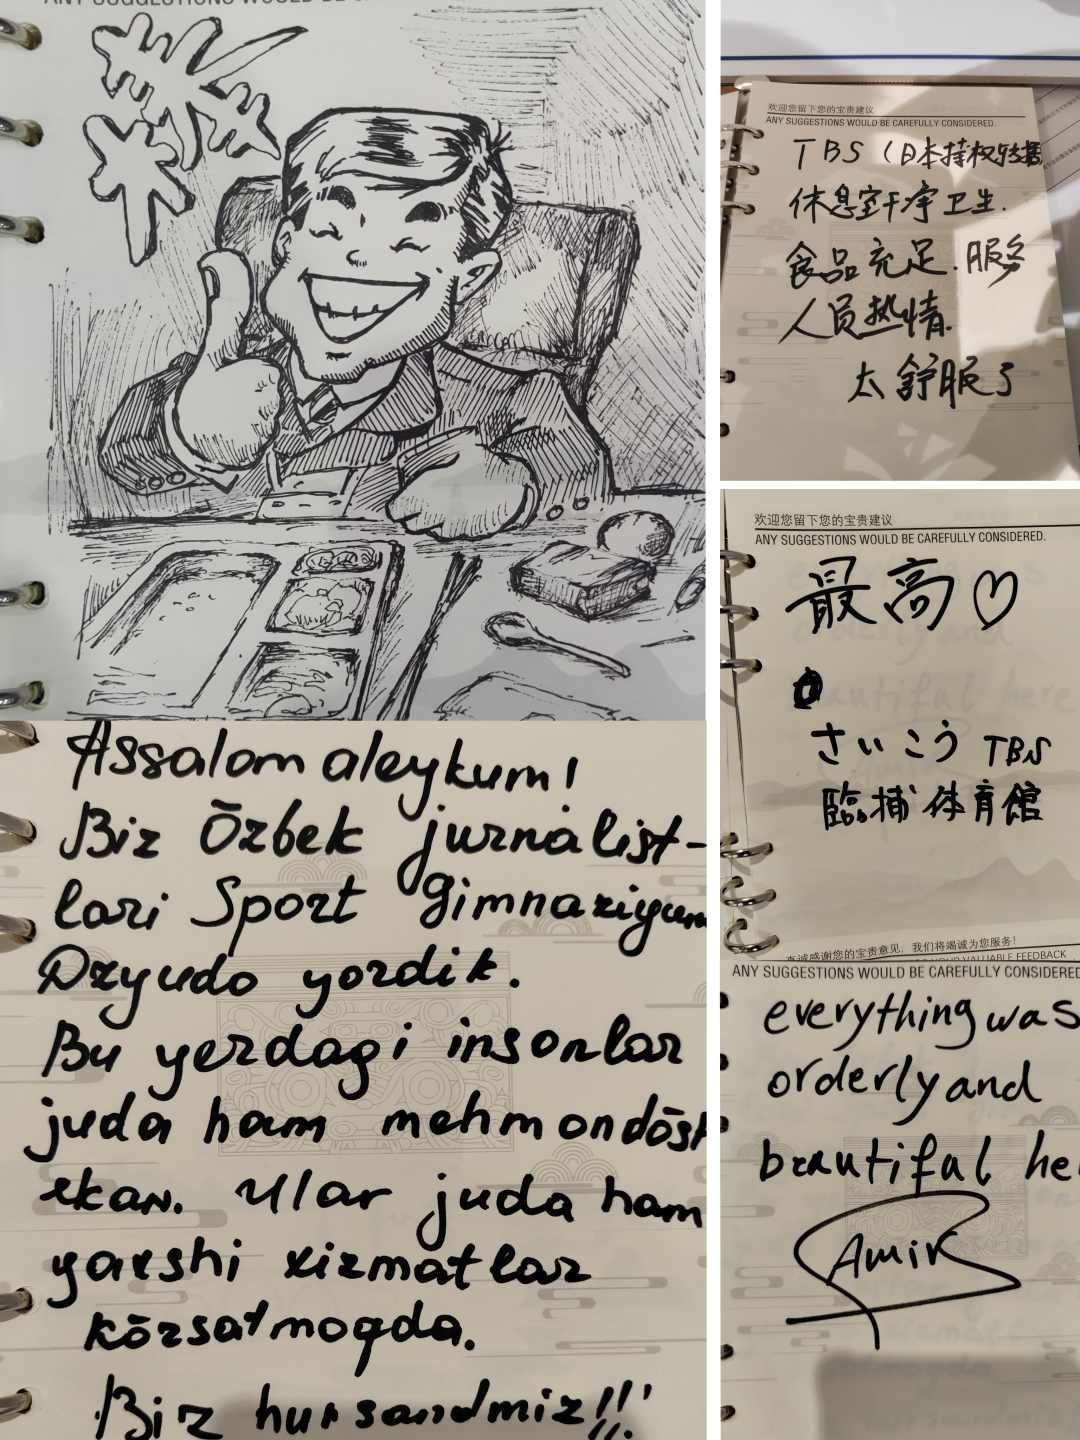 Assalom aleykum!
Biz Õzbek jurnalist-
lari Sport Gimnaziyum
Dzyudo yozdik.
Bu yerdagi insonlar
juda ham mehmondõst
ekan. Ular juda ham
yaxshi xizmatlar
kõrsatmoqda.
Biz hursandmiz!!!
欢迎您留下您的宝贵建议
ANY SUGGESTIONS WOULD BE CAREFULLY CONSIDERED.
TBS (日本持权转播
休息室干净卫生.
食品充足.服务
人员热情.
太舒服了
欢迎您留下您的宝贵建议
ANY SUGGESTIONS WOULD BE CAREFULLY CONSIDERED.
最高♡
さいこう TBS
臨捕体育館
真诚感谢您的宝贵意见，我们将竭诚为您服务!
YOUR VALUABLE FEEDBACK
ANY SUGGESTIONS WOULD BE CAREFULLY CONSIDERED
everything was
orderly and
beautiful he
Amir